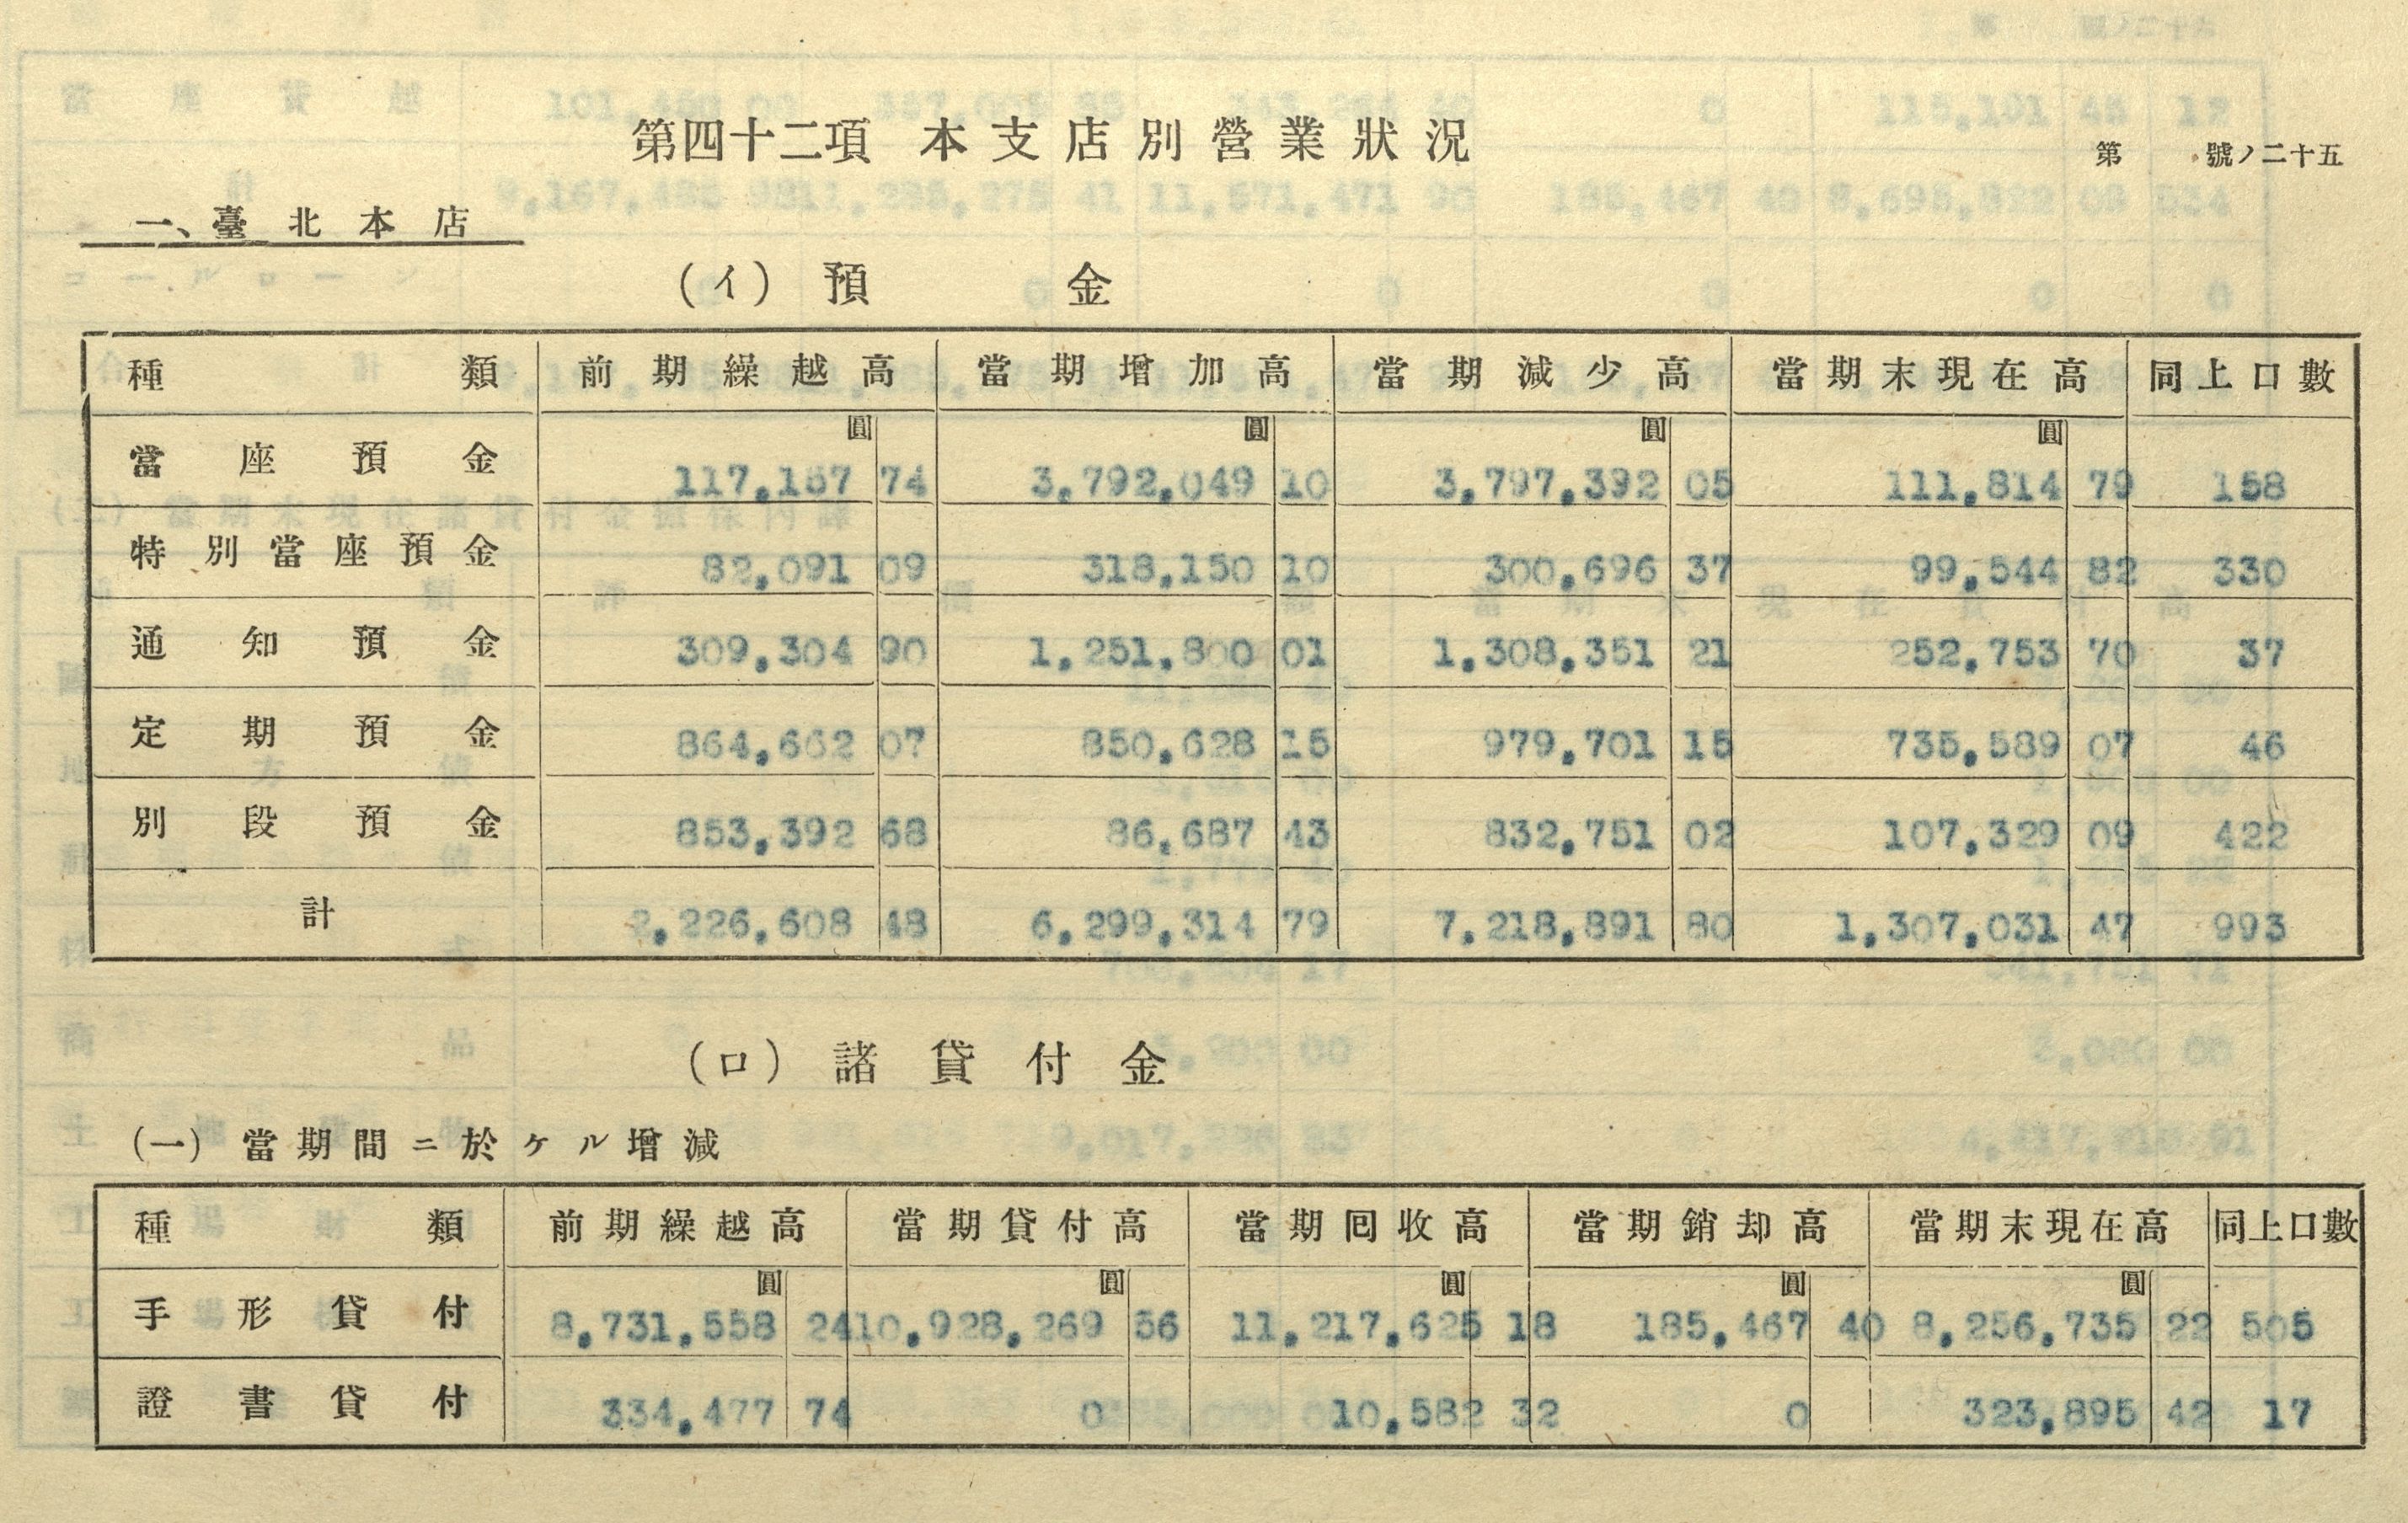 第四十二項 本支店別營業狀況
第 號ノ二十五
一、臺北本店
(イ) 預金
種類 前期繰越高 當期增加高 當期減少高 當期末現在高 同上口數
圓 圓 圓 圓
當座預金 117,157 74 3,792,049 10 3,797,392 05 111,814 79 158
特別當座預金 82,091 09 318,150 10 300,696 37 99,544 82 330
通知預金 309,304 90 1,251,800 01 1,308,351 21 252,753 70 37
定期預金 864,662 07 850,628 15 979,701 15 735,589 07 46
別段預金 853,392 68 86,687 43 832,751 02 107,329 09 422
計 2,226,608 48 6,299,314 79 7,218,891 80 1,307,031 47 993
(ロ) 諸貸付金
(一) 當期間ニ於ケル增減
種類 前期繰越高 當期貸付高 當期囘收高 當期銷却高 當期末現在高 同上口數
圓 圓 圓 圓 圓
手形貸付 8,731,558 24 10,928,269 56 11,217,625 18 185,467 40 8,256,735 22 505
證書貸付 334,477 74 0 10,582 32 0 323,895 42 17